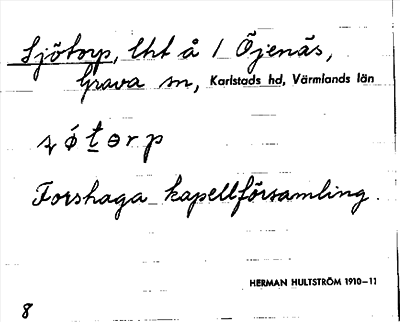 Sjötorp, lht å 1 Öjenäs,
Grava sn, Karlstads hd, Värmlands län
Forshaga kapellförsamling.
HERMAN HULTSTRÖM 1910–11
8